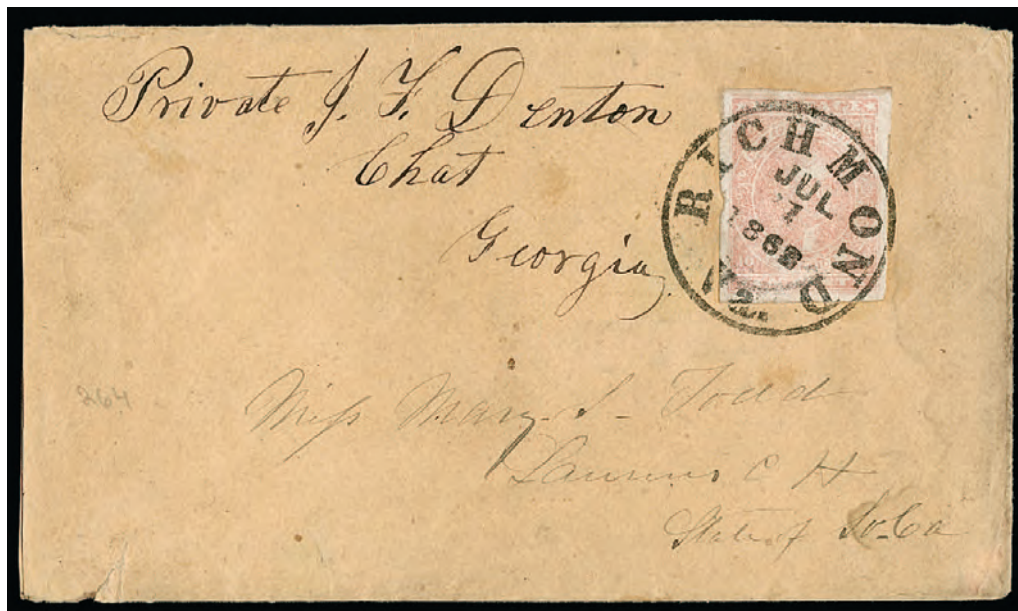 Private J. F. Denton
Chat
Georgia
RICHMOND
JUL
7
1862
Va.
264
Miss Mary S. Todd
Laurens C H
State of So-Ca